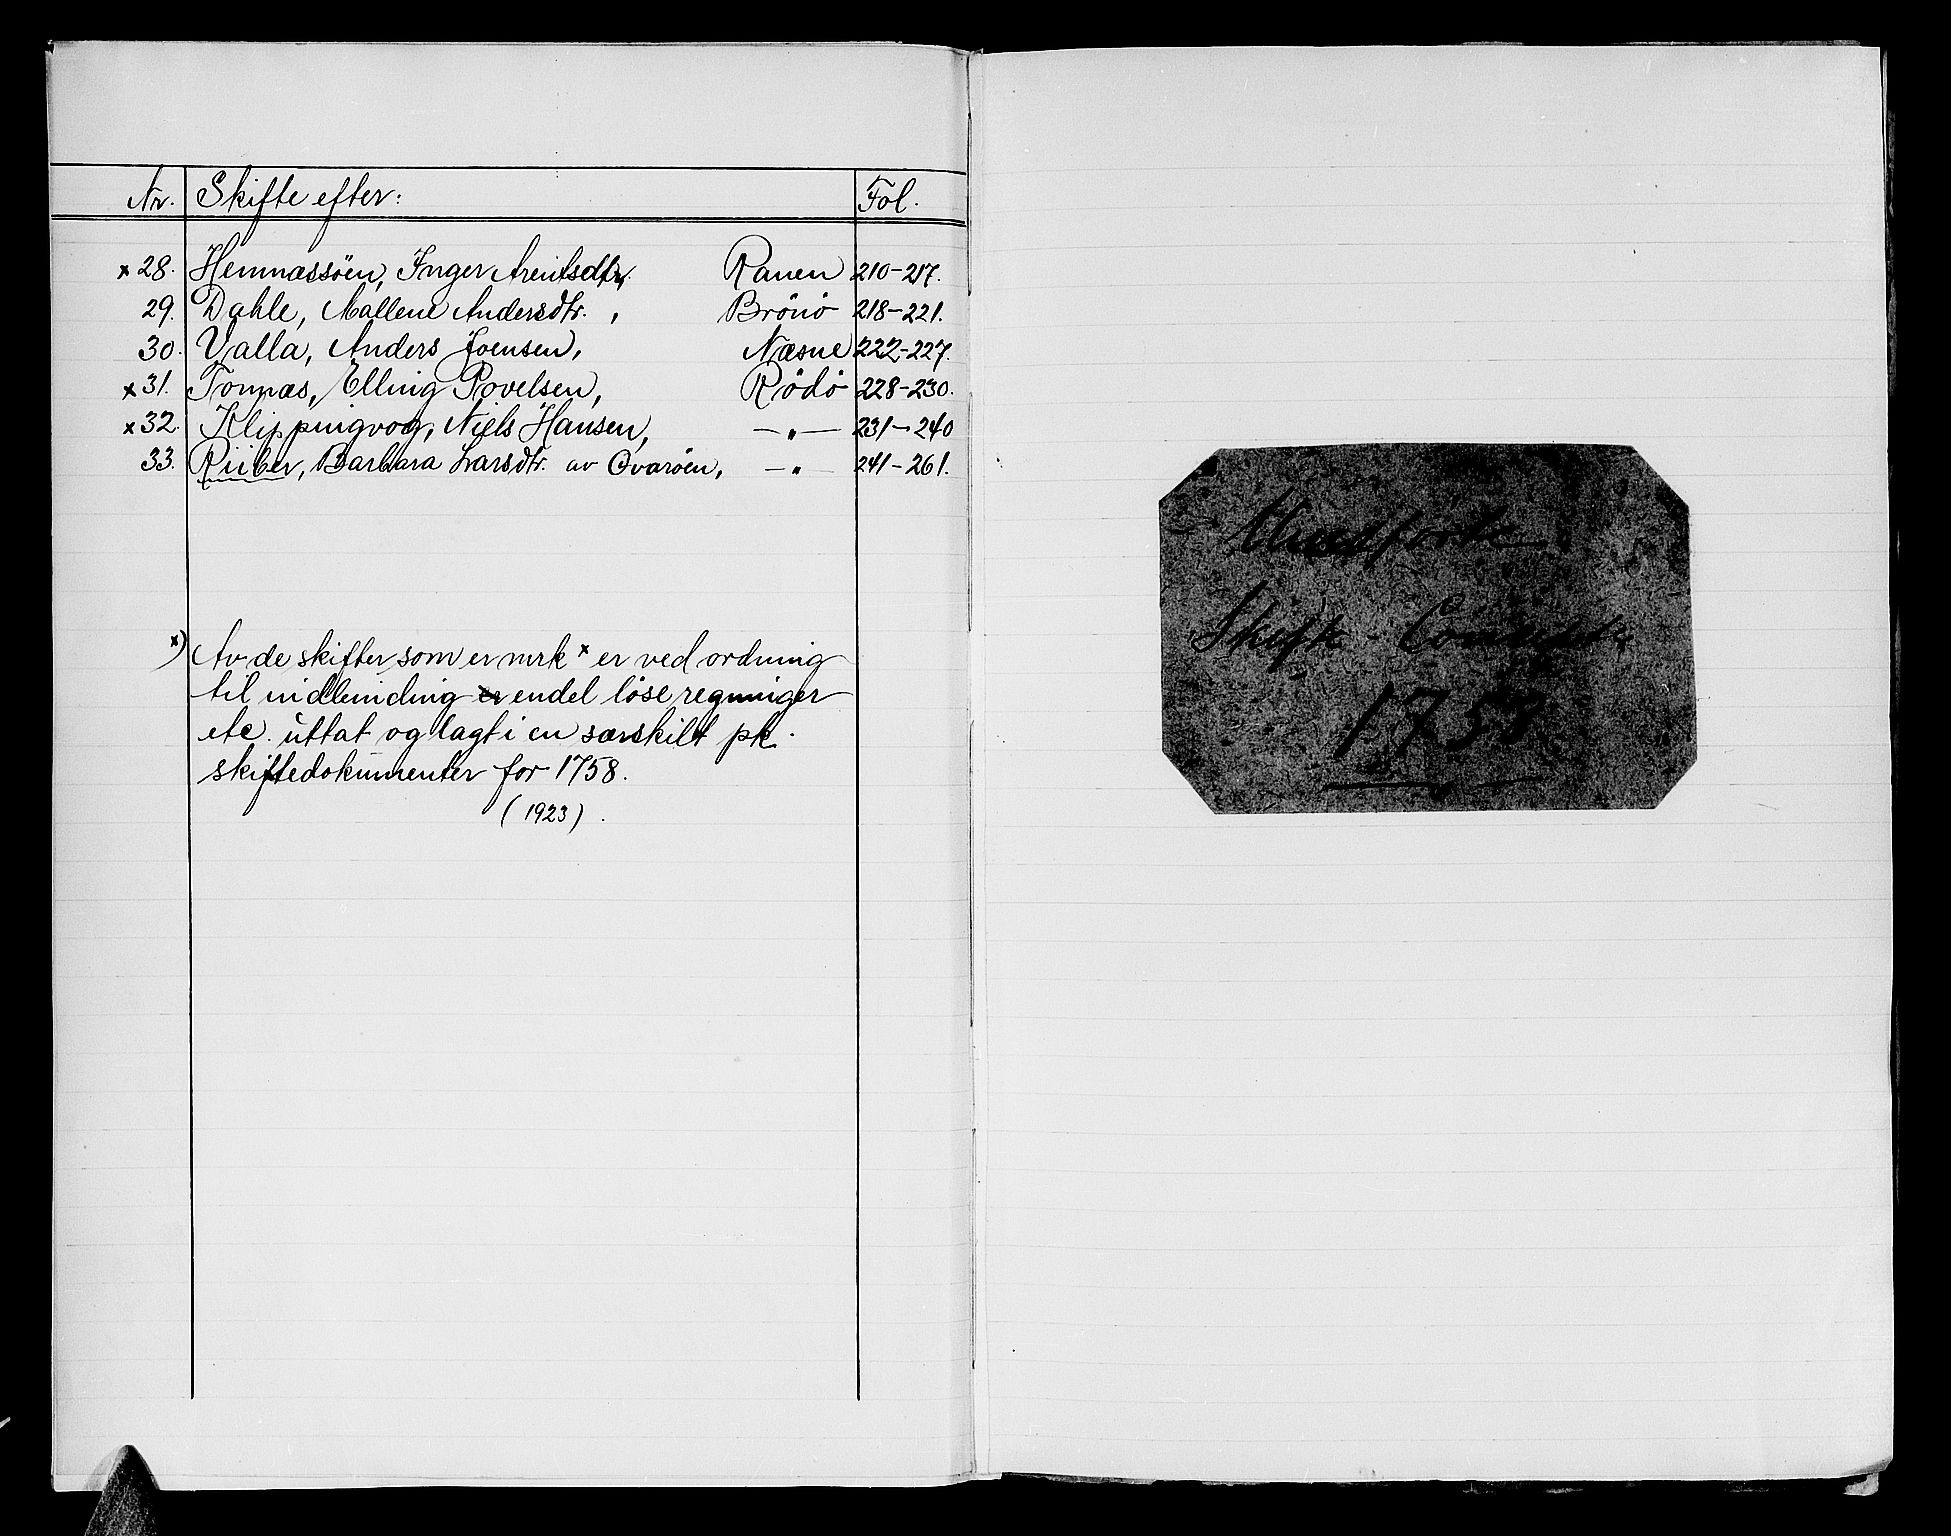 Nr. Skifte efter: Fol.
x 28. Hemnæssöen, Inger Arentsdtr. Ranen 210-217.
29. Dahle, Mallene Andersdtr., Brönö 218-221.
30. Valla, Anders Joensen, Næsne 222-227.
x 31. Tonnæs, Elling Povelsen, Rödö 228-230.
x 32. Klippingvog, Niels Hansen, —„— 231-240
33. Riiber, Barbara Larsdtr. av Qvaröen, —„— 241-261.
x) Av de skifter som er mrk x er ved ordning
til indbinding endel löse regninger
etc. uttat og lagt i en særskilt pk.
skiftedokumenter for 1758.
(1923).
Skifte-
1758